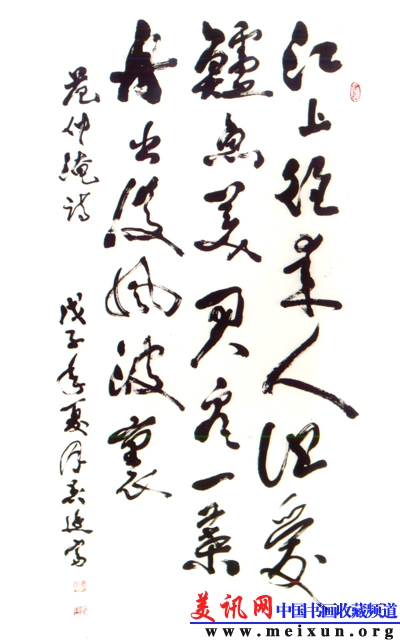 江上往來人但愛
鱸魚美君看一葉
舟出没風波裏
范仲淹詩 戊子年夏
美讯网 中国书画收藏频道
www.meixun.org